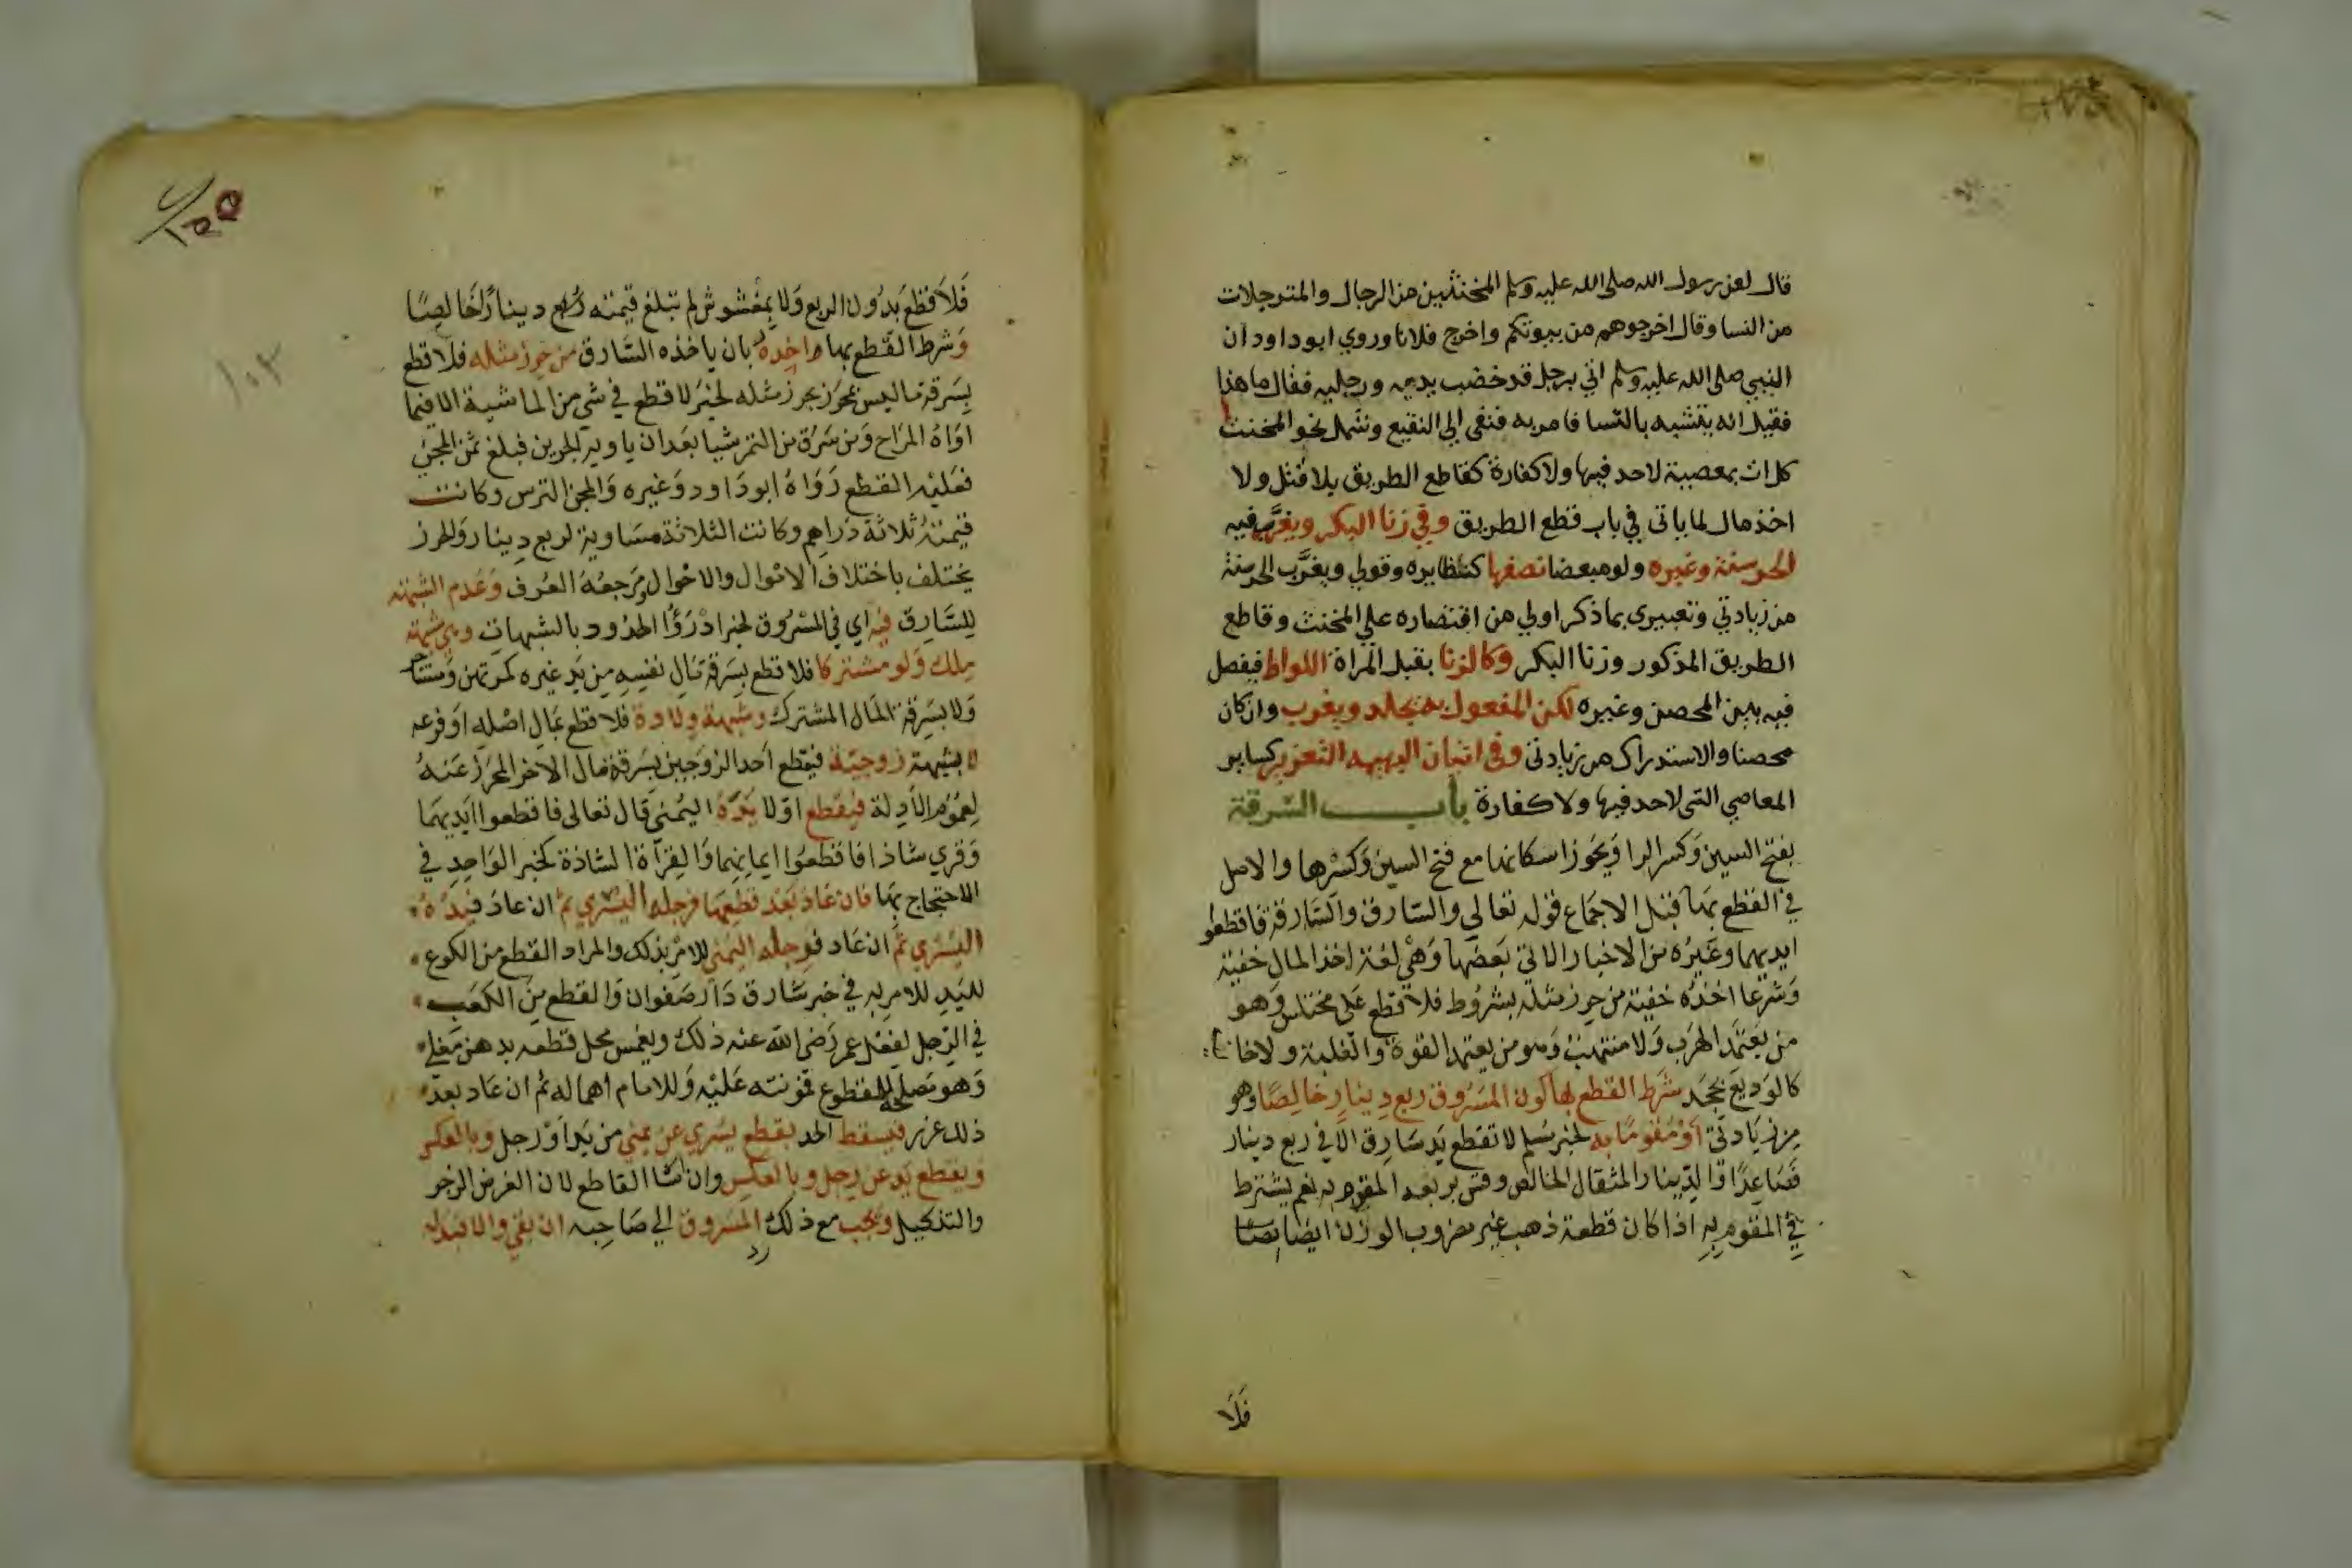 قال لعن رسول الله صلى الله عليه وسلم المخنثين من الرجال والمترجلات
من النسا وقال اخرجوهم من بيوتكم واخرج فلانا وروي ابو داود ان
النبي صلى الله عليه وسلم اتي برجل قد خضب يديه ورجليه فقال ما هذا
فقيل انه يتشبه بالنسا فامر به فنفى الي النقيع وتشمل نحو المخنث
كل ات بمعصية لاحد فيها ولا كفارة كقاطع الطريق بلا قتل ولا
اخذ مال لما ياتي في باب قطع الطريق وفي زنا البكر ويغرب فيه
الحر سنة وغيره ولو مبعضا نصفها كنظايره وقولي ويغرب الحر سنة
من زيادتي وتعبيري بما ذكر اولي من اقتصاره علي المخنث وقاطع
الطريق المذكور وزنا البكر وكالزنا بقبل المراة اللواط فيفصل
فيه بين المحصن وغيره لكن المفعول به يجلد ويغرب وان كان
محصنا والاستدراك من زيادتي وفي اتيان البهيمه التعزير كساير
المعاصي التي لاحد فيها ولا كفارة باب السرقة
بفتح السين وكسر الرا ويجوز اسكانها مع فتح السين وكسرها والاصل
في القطع بها قبل الاجماع قوله تعالي والسارق والسارقة فاقطعوا
ايديهما وغيره من الاخبار الاتي بعضها وهي لغة اخذ المال خفية
وشرعا اخذه خفية من حرز مثله بشروط فلا قطع على مختلس وهو
من يعتمد الهرب ولا منتهب وهو من يعتمد القوة والغلبة ولا خاين
كالوديع بجحد شرط القطع بها كون المسروق ربع دينار خالصا وهو
من زيادتي او مقوما به لخبر مسلم لا تقطع يد سارق الا في ربع دينار
فصاعدا والدينار المثقال الخالص وقس بربعه المقوم به نعم يشترط
في المقوم به اذا كان قطعة ذهب غير مضروب الوزن ايضا
فلا
١٥٥
١٠٣
فلا قطع بدون الربع ولا بمغشوش لم تبلغ قيمته ربع دينار خالصا
وشرط القطع بها واخذه بان ياخذه السارق من حرز مثله فلا قطع
بسرقة ما ليس بمحرز بحرز مثله لخبر لا قطع في شي من الماشية الا فيما
اواه المراح ومن سرق من التمر شيا بعد ان ياويه الجرين فبلغ ثمن المجن
فعليه القطع رواه ابو داود وغيره والمجن الترس وكانت
قيمته ثلاثة دراهم وكانت الثلاثة مساوية لربع دينار والحرز
يختلف باختلاف الاموال والاحوال ومرجعه العرف وعدم الشبهة
للسارق فيه اي في المسروق لخبر ادرؤا الحدود بالشبهات وهي شبهة
ملك ولو مشتركا فلا قطع بسرقة مال نفسه من يد غيره كمرتهن ومستاجر
ولا بسرقة المال المشترك وشبهة ولادة فلا قطع بمال اصله او فرعه
لا بشبهة زوجية فيقطع احد الزوجين بسرقة مال الاخر المحرز عنه
لعموم الادلة فيقطع اولا يده اليمني قال تعالى فاقطعوا ايديهما
وقري شاذا فاقطعوا ايمانهما والقراة الشاذة كخبر الواحد في
الاحتجاج بها فان عاد بعد قطعها فرجله اليسري ثم ان عاد فيده
اليسري ثم ان عاد فرجله اليمني للامر بذلك والمراد القطع من الكوع
لليد للامر به في خبر سارق ردا صفوان والقطع من الكعب
في الرجل لفعل عمر رضى الله عنه ذلك ويغمس محل قطعه بدهن مغلي
وهو مصلحة للمقطوع فمونته عليه وللامام اهماله ثم ان عاد بعد
ذلك عزر فيسقط الحد بقطع يسري عن يمني من يد او رجل وبالعكس
وبقطع يد عن رجل وبالعكس وان شا القاطع لان الغرض الزجر
والتنكيل ويجب مع ذلك رد المسروق الي صاحبه ان بقي والا فبدله